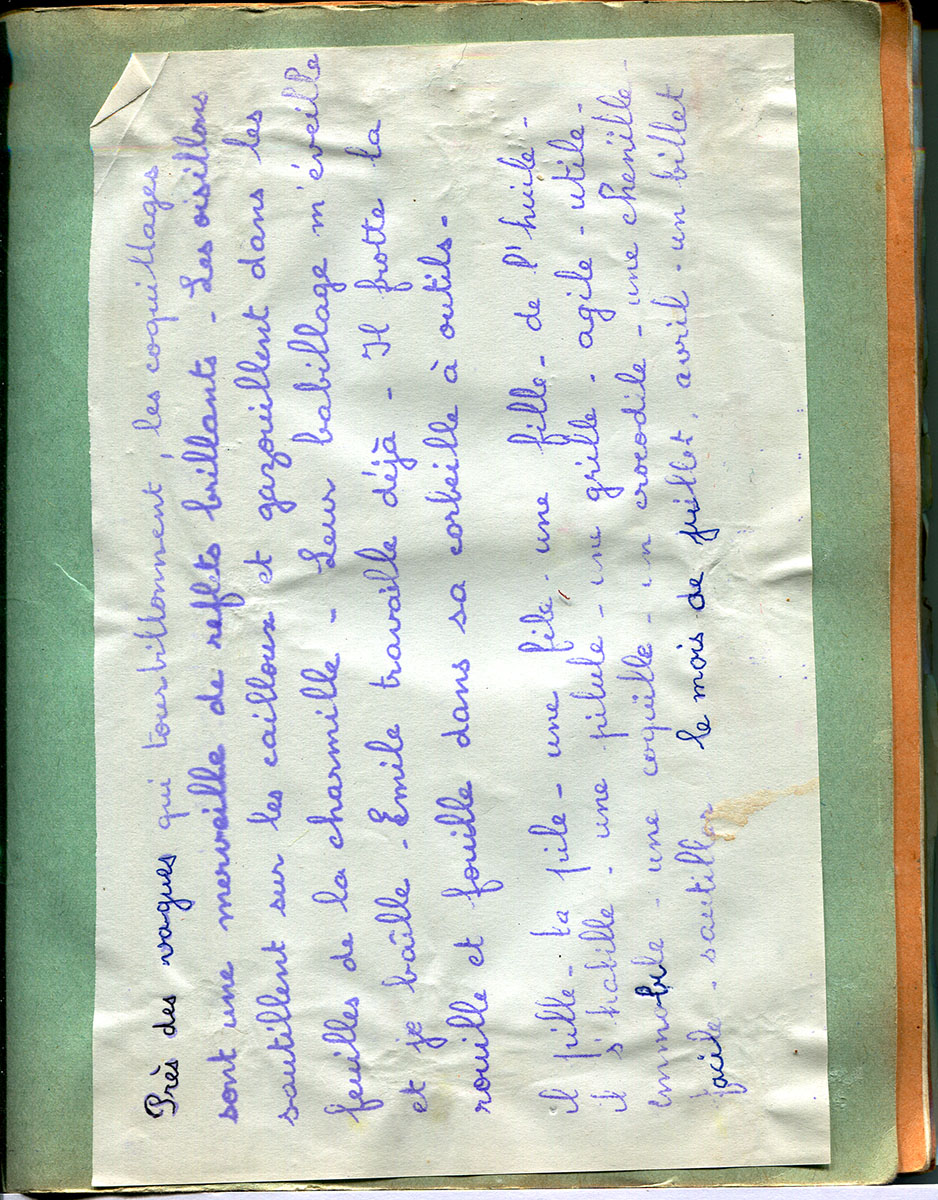 Près des vagues qui tourbillonnent, les coquillages
sont une merveille de reflets brillants - Les oisillons
sautillent sur les cailloux et gazouillent dans les
feuilles de la charmille - Leur babillage m'éveille
et je bâille - Emile travaille déjà - Il frotte la
rouille et fouille dans sa corbeille à outils -
il pille - ta pile - une file - une fille - de l'huile -
il s'habille - une pilule - une grille - agile - utile -
immobile - une coquille - un crocodile - une chenille -
facile - sautiller le mois de juillet, avril - un billet